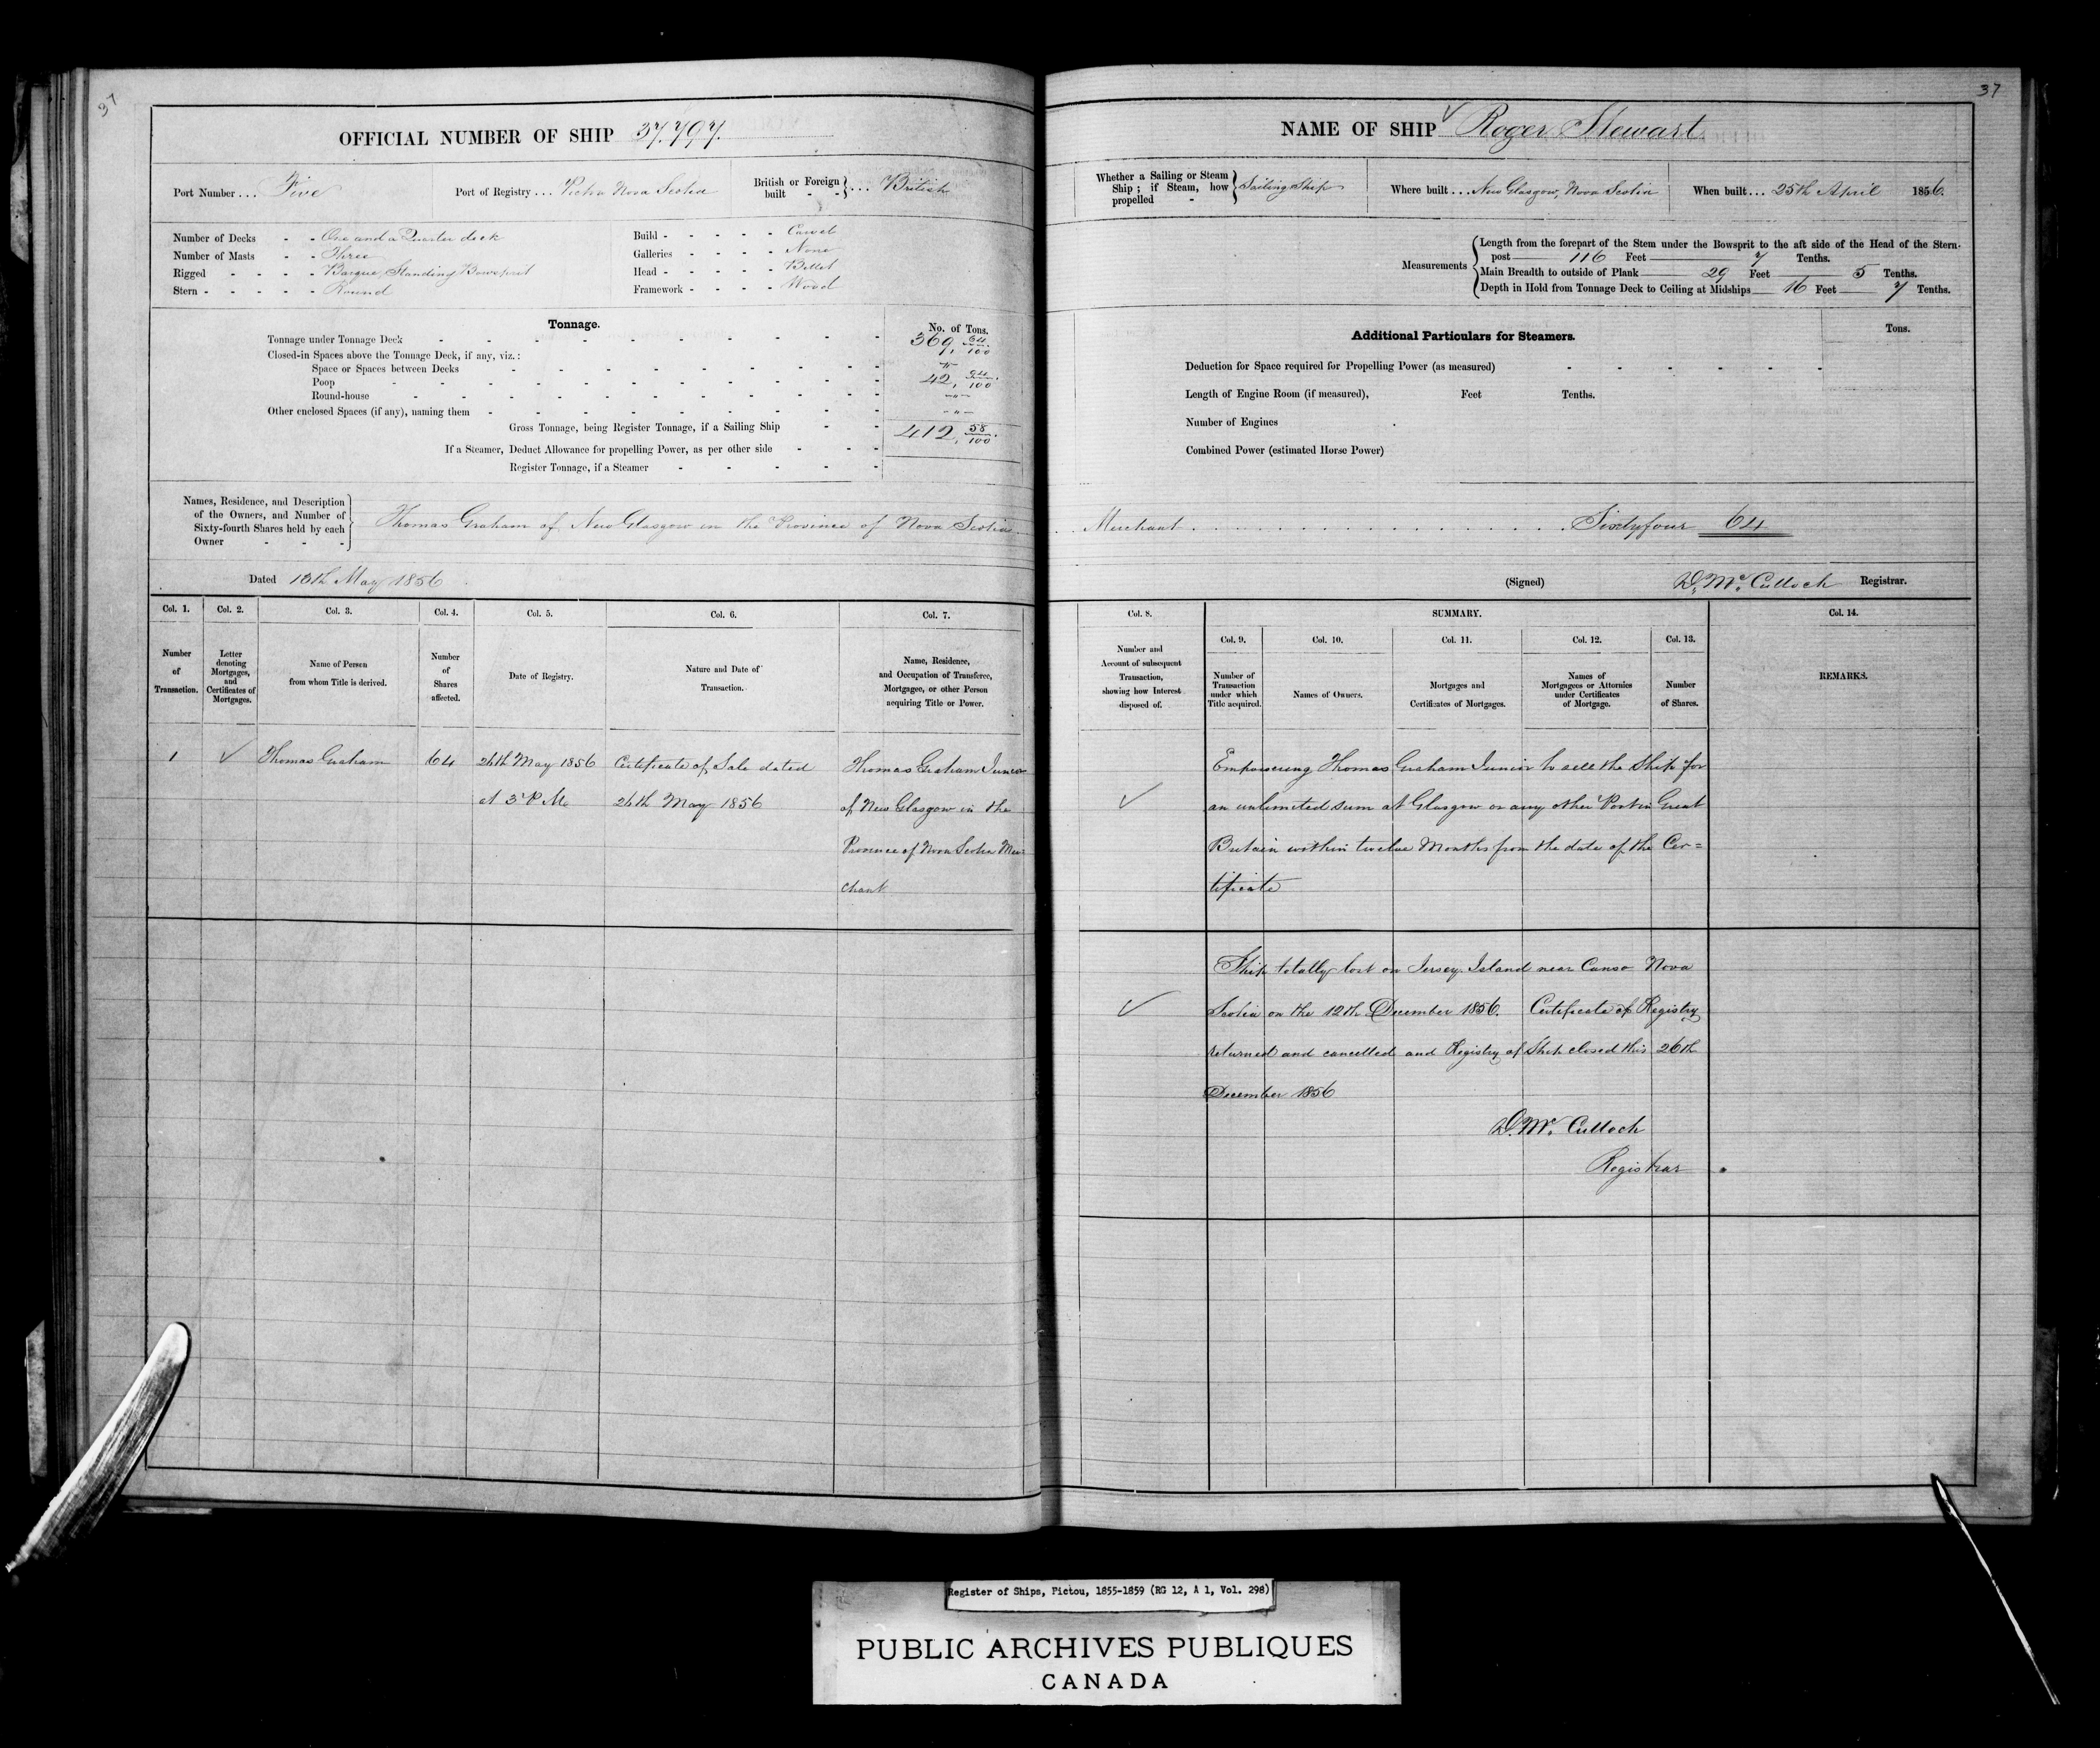 37
OFFICIAL NUMBER OF SHIP 37.797.
Port Number ... Five
Port of Registry ... Pictou Nova Scotia
British or Foreign built - - } ... British
Number of Decks - - One and a Quarter deck
Number of Masts - - Three
Rigged - - - - Barque, Standing Bowsprit
Stern - - - - - Round
Build - - - - - Carvel
Galleries - - - - None
Head - - - - - Billet
Framework - - - - Wood
Tonnage.
No. of Tons.
Tonnage under Tonnage Deck 369, 64/100
Closed-in Spaces above the Tonnage Deck, if any, viz.:
Space or Spaces between Decks - " -
Poop 42, 94/100
Round-house - " -
Other enclosed Spaces (if any), naming them - " -
Gross Tonnage, being Register Tonnage, if a Sailing Ship 412, 58/100
If a Steamer, Deduct Allowance for propelling Power, as per other side
Register Tonnage, if a Steamer
Names, Residence, and Description
of the Owners, and Number of
Sixty-fourth Shares held by each
Owner - - -
Thomas Graham of New Glasgow in the Province of Nova Scotia
Dated 13th May 1856
Col. 1. Col. 2. Col. 3. Col. 4. Col. 5. Col. 6. Col. 7.
Number of Transaction.
Letter denoting Mortgages, and Certificates of Mortgages.
Name of Person from whom Title is derived.
Number of Shares affected.
Date of Registry.
Nature and Date of Transaction.
Name, Residence, and Occupation of Transferee, Mortgagee, or other Person acquiring Title or Power.
1 Thomas Graham 64 26th May 1856 Certificate of Sale dated Thomas Graham Junior
at 3 P.M. 26th May 1856 of New Glasgow in the
Province of Nova Scotia Mer=
chant
37
NAME OF SHIP Roger Stewart
Whether a Sailing or Steam
Ship; if Steam, how
propelled -
Sailing Ship
Where built ... New Glasgow, Nova Scotia
When built ... 25th April 1856.
Measurements
Length from the forepart of the Stem under the Bowsprit to the aft side of the Head of the Stern-
post 116 Feet 7 Tenths.
Main Breadth to outside of Plank 29 Feet 5 Tenths.
Depth in Hold from Tonnage Deck to Ceiling at Midships 16 Feet 7 Tenths.
Additional Particulars for Steamers.
Tons.
Deduction for Space required for Propelling Power (as measured)
Length of Engine Room (if measured), Feet Tenths.
Number of Engines
Combined Power (estimated Horse Power)
Merchant Sixtyfour 64
(Signed) D. McCulloch Registrar.
Col. 8. SUMMARY. Col. 14.
Col. 9. Col. 10. Col. 11. Col. 12. Col. 13.
Number and Account of subsequent Transaction, showing how Interest disposed of.
Number of Transaction under which Title acquired.
Names of Owners.
Mortgages and Certificates of Mortgages.
Names of Mortgagees or Attornies under Certificates of Mortgage.
Number of Shares.
REMARKS.
Empowering Thomas Graham Junior to sell the Ship for
an unlimited sum at Glasgow or any other Port in Great
Britain within twelve Months from the date of the Cer=
tificate
Ship totally lost on Jersey Island near Canso Nova
Scotia on the 12th December 1856. Certificate of Registry
returned and cancelled and Registry of Ship closed this 26th
December 1856
D. McCulloch
Registrar
Register of Ships, Pictou, 1855-1859 (RG 12, A 1, Vol. 298)
PUBLIC ARCHIVES PUBLIQUES
CANADA